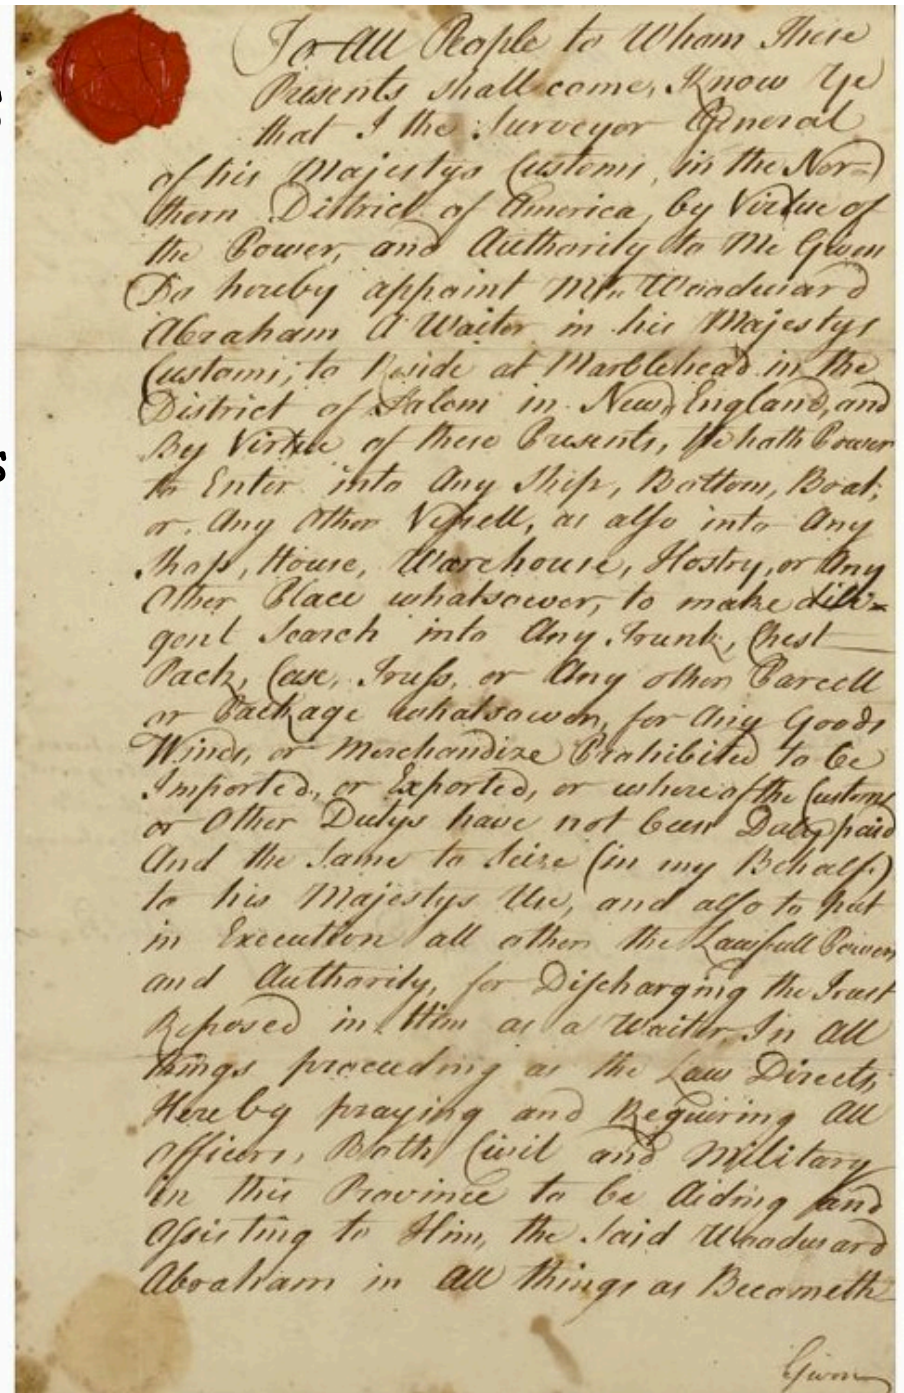 To All People to Wham These
Presents shall come, Know Ye
that I the Surveyor General
of his Majestys Customs, in the Nor=
thern District of America, by Virtue of
the Power, and Authority to Me Given
Do hereby appoint Mr. Woodward
Abraham A Waiter in his Majestys
Customs, to Reside at Marblehead in the
District of Salem in New England, and
By Virtue of these Presents, He hath Power
to Enter into Any Ship, Bottom, Boat,
or Any Other Vessell, as also into Any
Shop, House, Warehouse, Hostry, or Any
Other Place whatsoever, to make dilli=
gent Search into Any Trunk, Chest
Pack, Case, Truss, or Any other Parcell
or Package whatsoever, for Any Goods
Wines, or Merchandize Prohibited to be
Imported, or Exported, or whereof the Customs
or Other Dutys have not been Duly paid
And the Same to Seize (in my Behalf)
to his Majestys Use, and also to put
in Execution all other the Lawfull Powers
and Authority, for Discharging the Trust
Reposed in Him as a Waiter, In All
things proceeding as the Law Directs,
Hereby praying and Requiring All
officers, Both Civil and Military
in this Province to be Aiding and
Assisting to Him, the Said Woodward
Abraham in All things as Becometh
Given